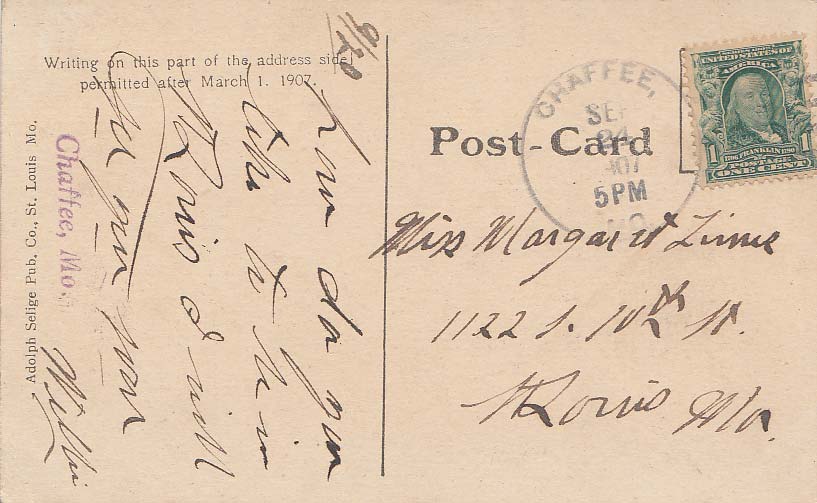 9/20
Writing on this part of the address side
permitted after March 1. 1907.
How do you
like to be in
St Louis I will
let you
Willie
Chaffee, Mo.
Adolph Selige Pub. Co., St. Louis Mo.
Post-Card
CHAFFEE,
SEP
24
907
5PM
MO
UNITED STATES OF
AMERICA
1706 FRANKLIN 1790
POSTAGE
1 ONE CENT 1
Miss Margaret Zinne
1122 S. 10th St.
St Louis Mo.